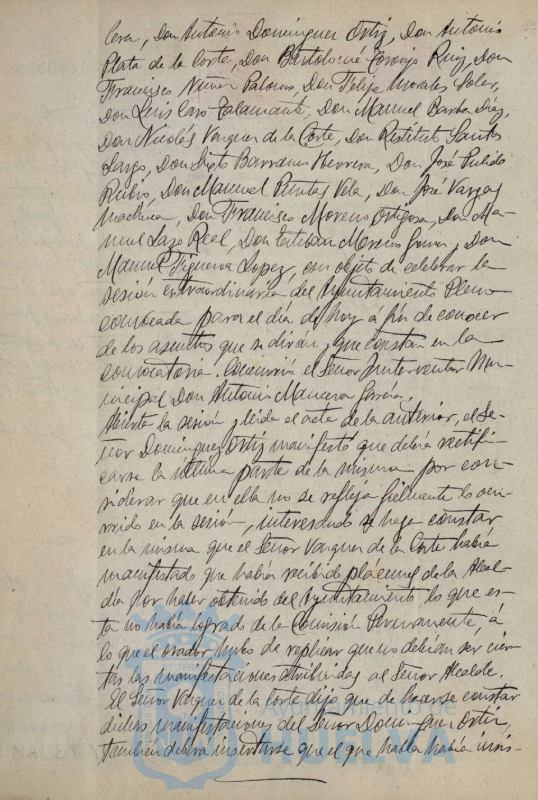 Cera, Don Antonio Domínguez Ortiz, Don Antonio
Plata de la Corte, Don Bartolomé Toronjo Ruiz, Don
Francisco Núñez Palomo, Don Felipe Morales Soler,
Don Luis Caro Talamante, Don Manuel Barba Díaz,
Don Nicolás Vazquez de la Corte, Don Restituto Santos
Don Sixto Barranco Herrera, Don José Pulido
Rubio, Don Manuel Puntas Vela, Don José Vargas
Machuca, Don Francisco Moreno Ortigosa, Don Ma-
nuel Lazo Real, Don Esteban Moreno y Don
Manuel Figueroa Lopez, con objeto de celebrar la
sesión extraordinaria del Ayuntamiento Pleno
convocada para el día de hoy a fin de conocer
de los asuntos que se dirán y que constan en la
convocatoria. Concurrió el Señor Interventor Mu-
nicipal Don Antonio Mancera García.
Abierta la sesión y leida el acta de la anterior, el Se-
ñor Domínguez Ortiz manifestó que debía rectifi-
carse la última parte de la misma por con-
siderar que en ella no se refleja fielmente lo ocu-
rrido en la sesión, interesando se haga constar
en la misma que el Señor Vazquez de la Corte había
manifestado que había recibido plácemes de la Alcal-
día por haber obtenido del Ayuntamiento lo que es-
ta no había logrado de la Comisión Permanente, á
lo que el orador hubo de replicar que no debían ser cier-
tas las manifestaciones atribuidas al Señor Alcalde.
El Señor Vazquez de la Corte dijo que de hacerse constar
dichas manifestaciones del Señor Domínguez Ortiz,
también debía insertarse que el que habla había insis-
Ayuntamiento de
HUELVA